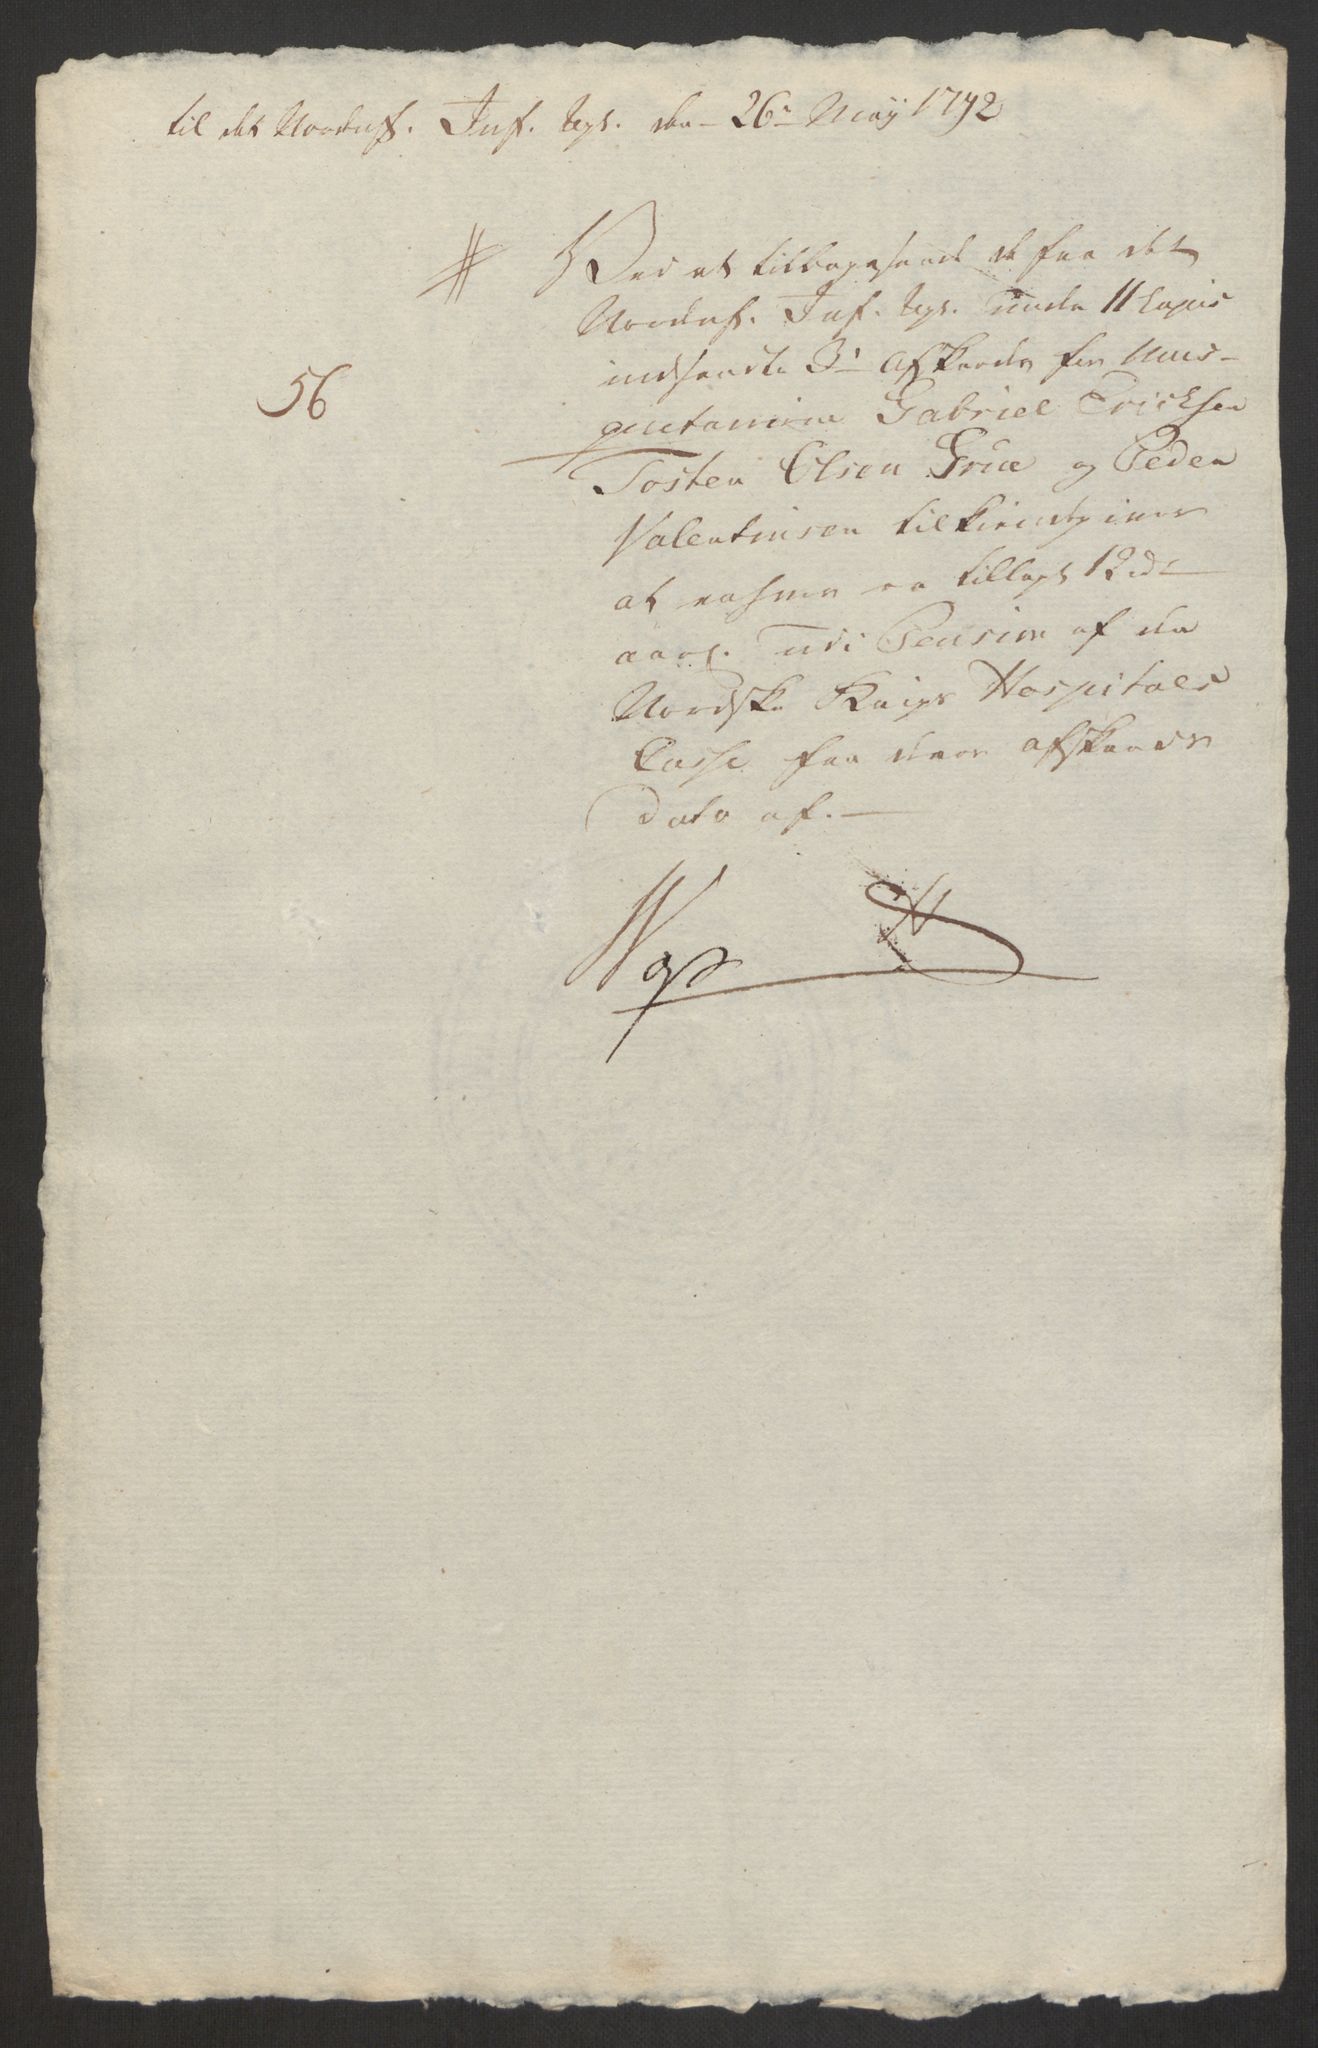 til det Nordenf. Inf. Rgt. den 26de May 1792
# Ved at tilbagesende de fra det
Nordenf. Inf. Rgt. under 11 hujus
indsendte 3de Afskeeder for Mus-
56
queterererne Gabriel Ericksen
Tosten Olsen Grue og Peder
Valentinsen tilkiendegives
at enhver er tillagt 12 rd
aarl. udi Pension af den
Nordske Krigs Hospitals
Casse fra deres Afskeeds
Dato af.